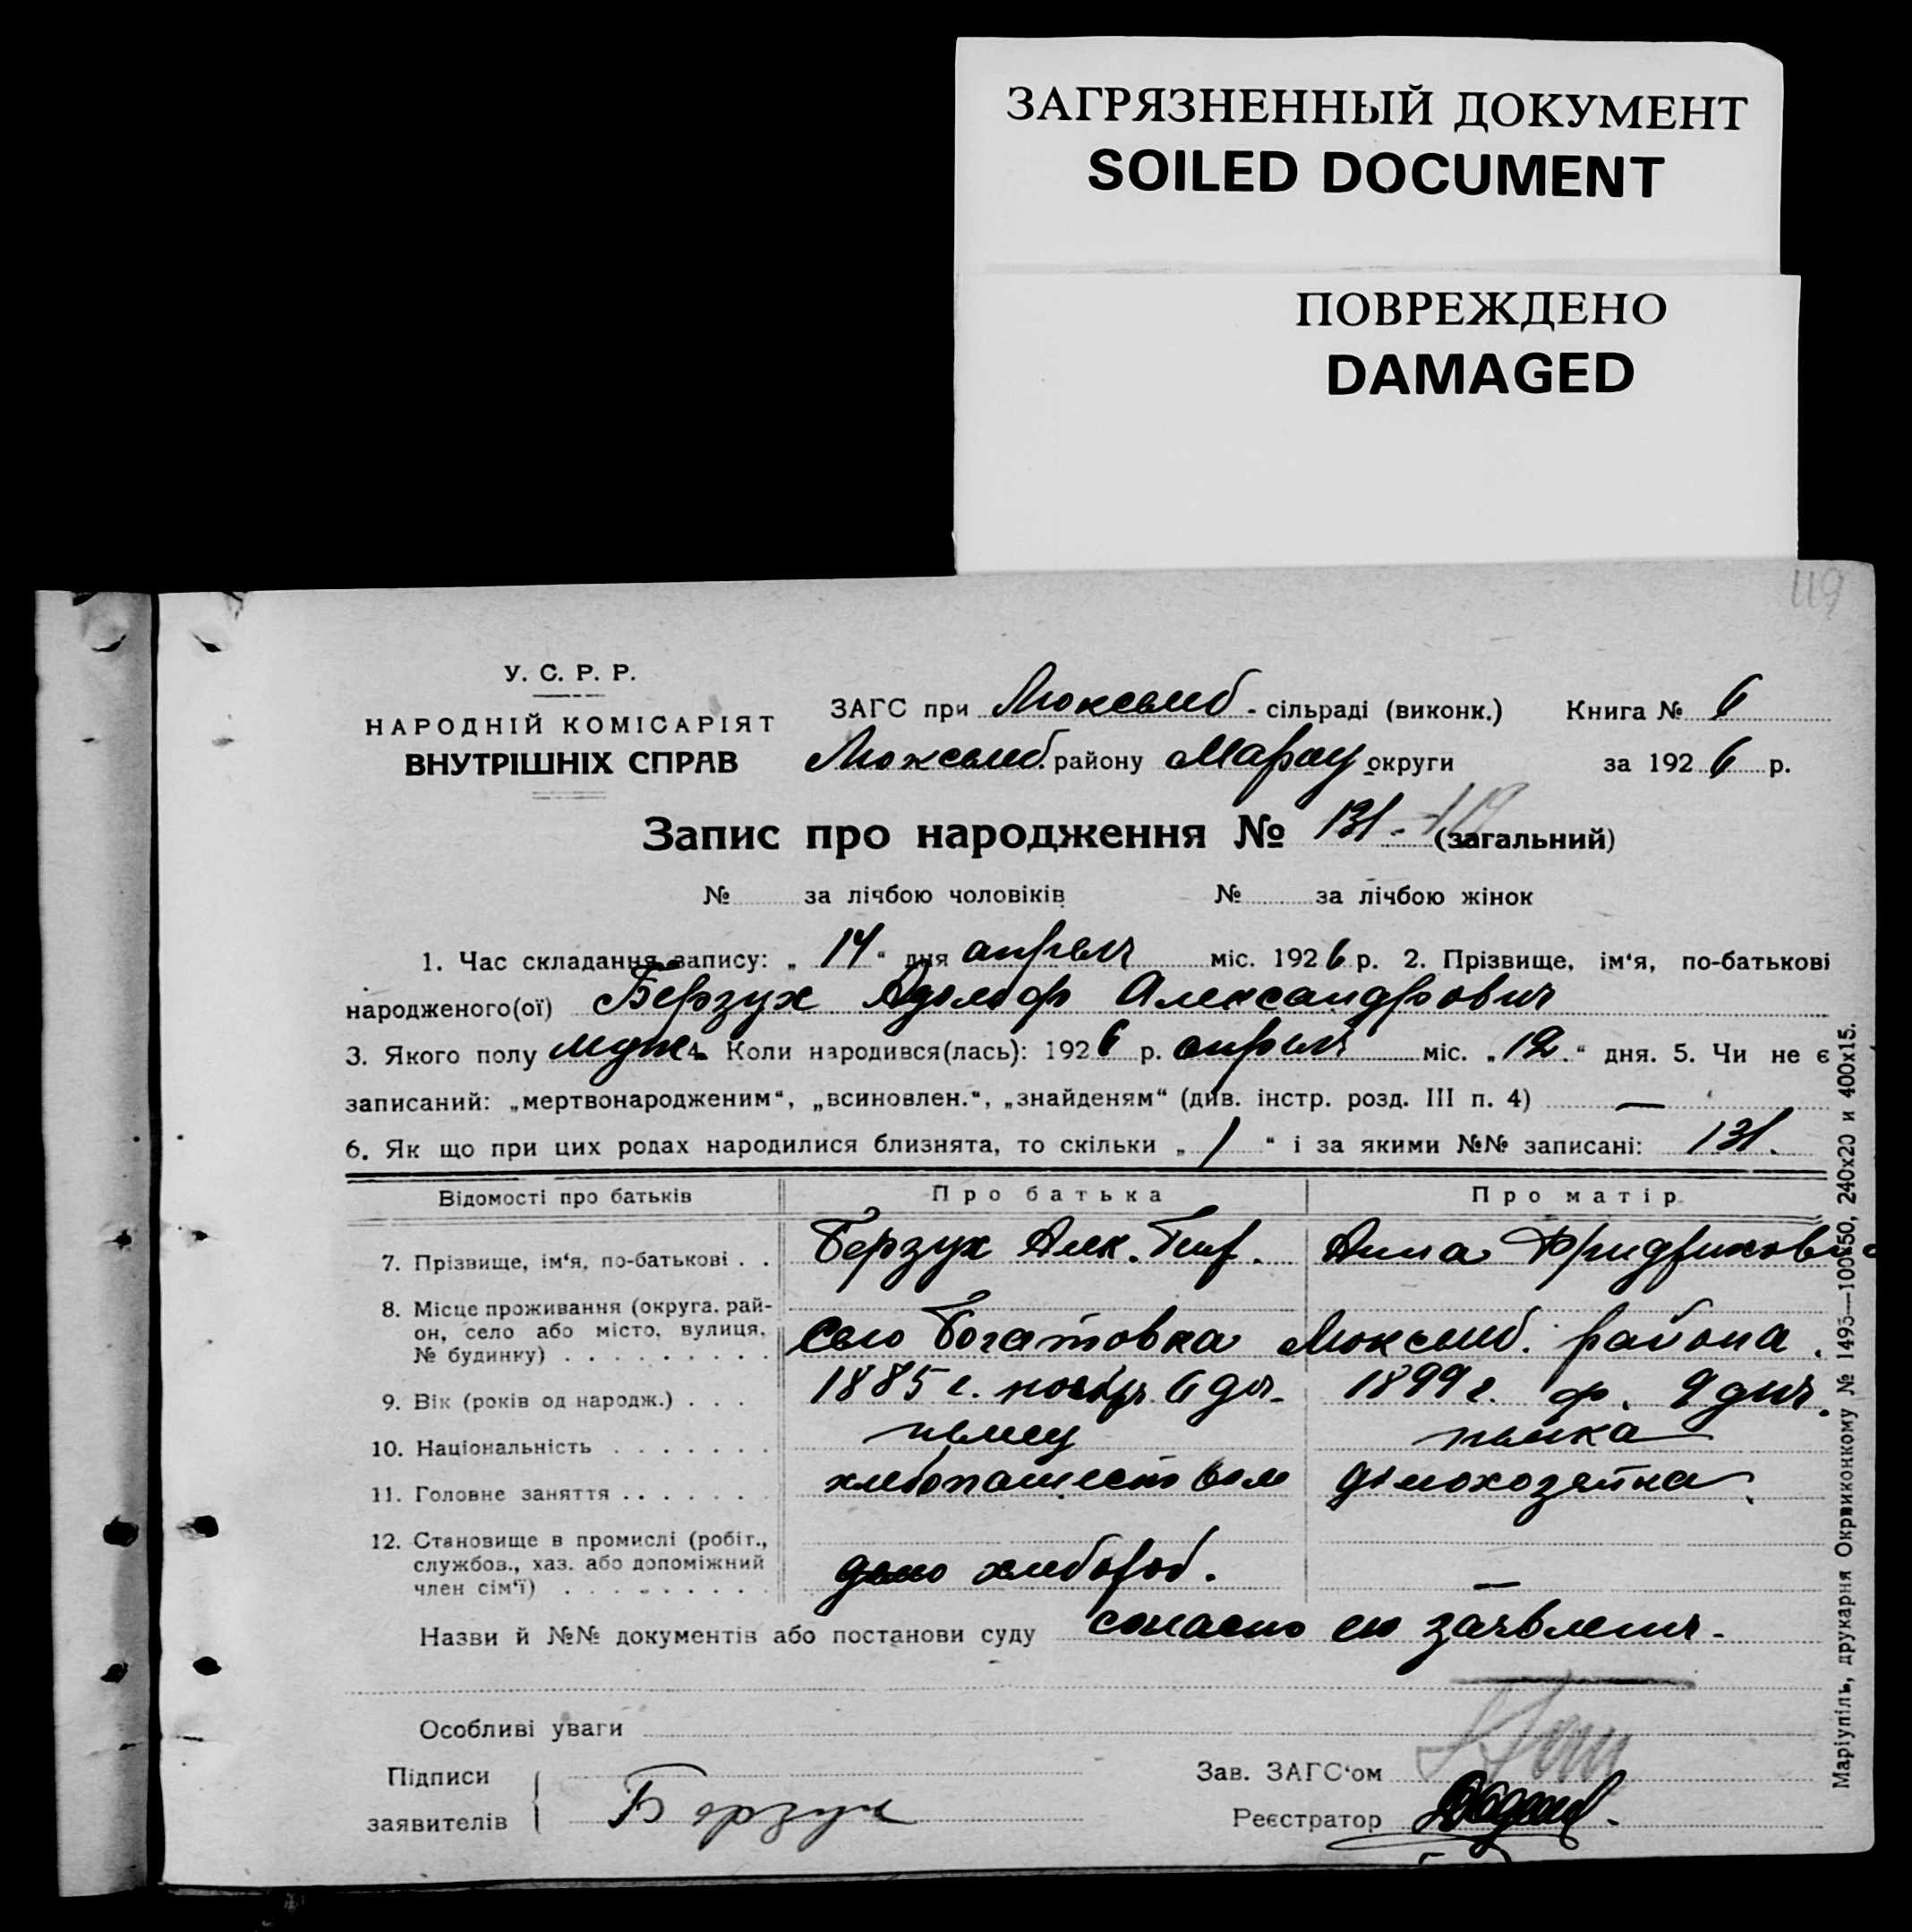 ЗАГРЯЗНЕННЫЙ ДОКУМЕНТ
SOILED DOCUMENT
ПОВРЕЖДЕНО
DAMAGED
119
У. С. Р. Р.
НАРОДНІЙ КОМІСАРІЯТ
ВНУТРІШНІХ СПРАВ
ЗАГС при Люксемб - сільраді (виконк.) Книга № 6
Люксемб. району Мариу округи за 1926 р.
Запис про народження № 131. 119 (загальний)
№ за лічбою чоловіків № за лічбою жінок
1. Час складання запису: „ 14 “ дня апреля міс. 1926 р. 2. Прізвище, ім‘я, по-батькові
народженого(ої) Берзух Адольф Александрович
3. Якого полу муж 4. Коли народився(лась): 1926 р. апреля міс. „ 12. “ дня. 5. Чи не є
записаний: „мертвонародженим“, „всиновлен.“, „знайденям“ (див. інстр. розд. III п. 4) —
6. Як що при цих родах народилися близнята, то скільки „ 1 “ і за якими №№ записані: 131.
Відомості про батьків Про батька Про матір
7. Прізвище, ім‘я, по-батькові . . Берзух Алек. Анна
8. Місце проживання (округа, рай-
он, село або місто, вулиця,
№ будинку) . . . . . . . . . Село Богатовка Люксемб. района.
9. Вік (років од народж.) . . . 1885 г. 6 дн. 1899 г. ф. 9 дня.
10. Національність . . . . . . . немец немка
11. Головне заняття . . . . . . . хлебопашеством домохозяйка
12. Становище в промислі (робіт.,
службов., хаз. або допоміжний
член сім‘ї) . . . . . . . . . хлебороб. —
Назви й №№ документів або постанови суду согласно его заявления.
Особливі уваги
Підписи
заявителів Берзух
Зав. ЗАГС‘ом
Реєстратор
Маріупіль, друкарня Окрвиконкому № 1495—100×50, 240x20 и 400x15.